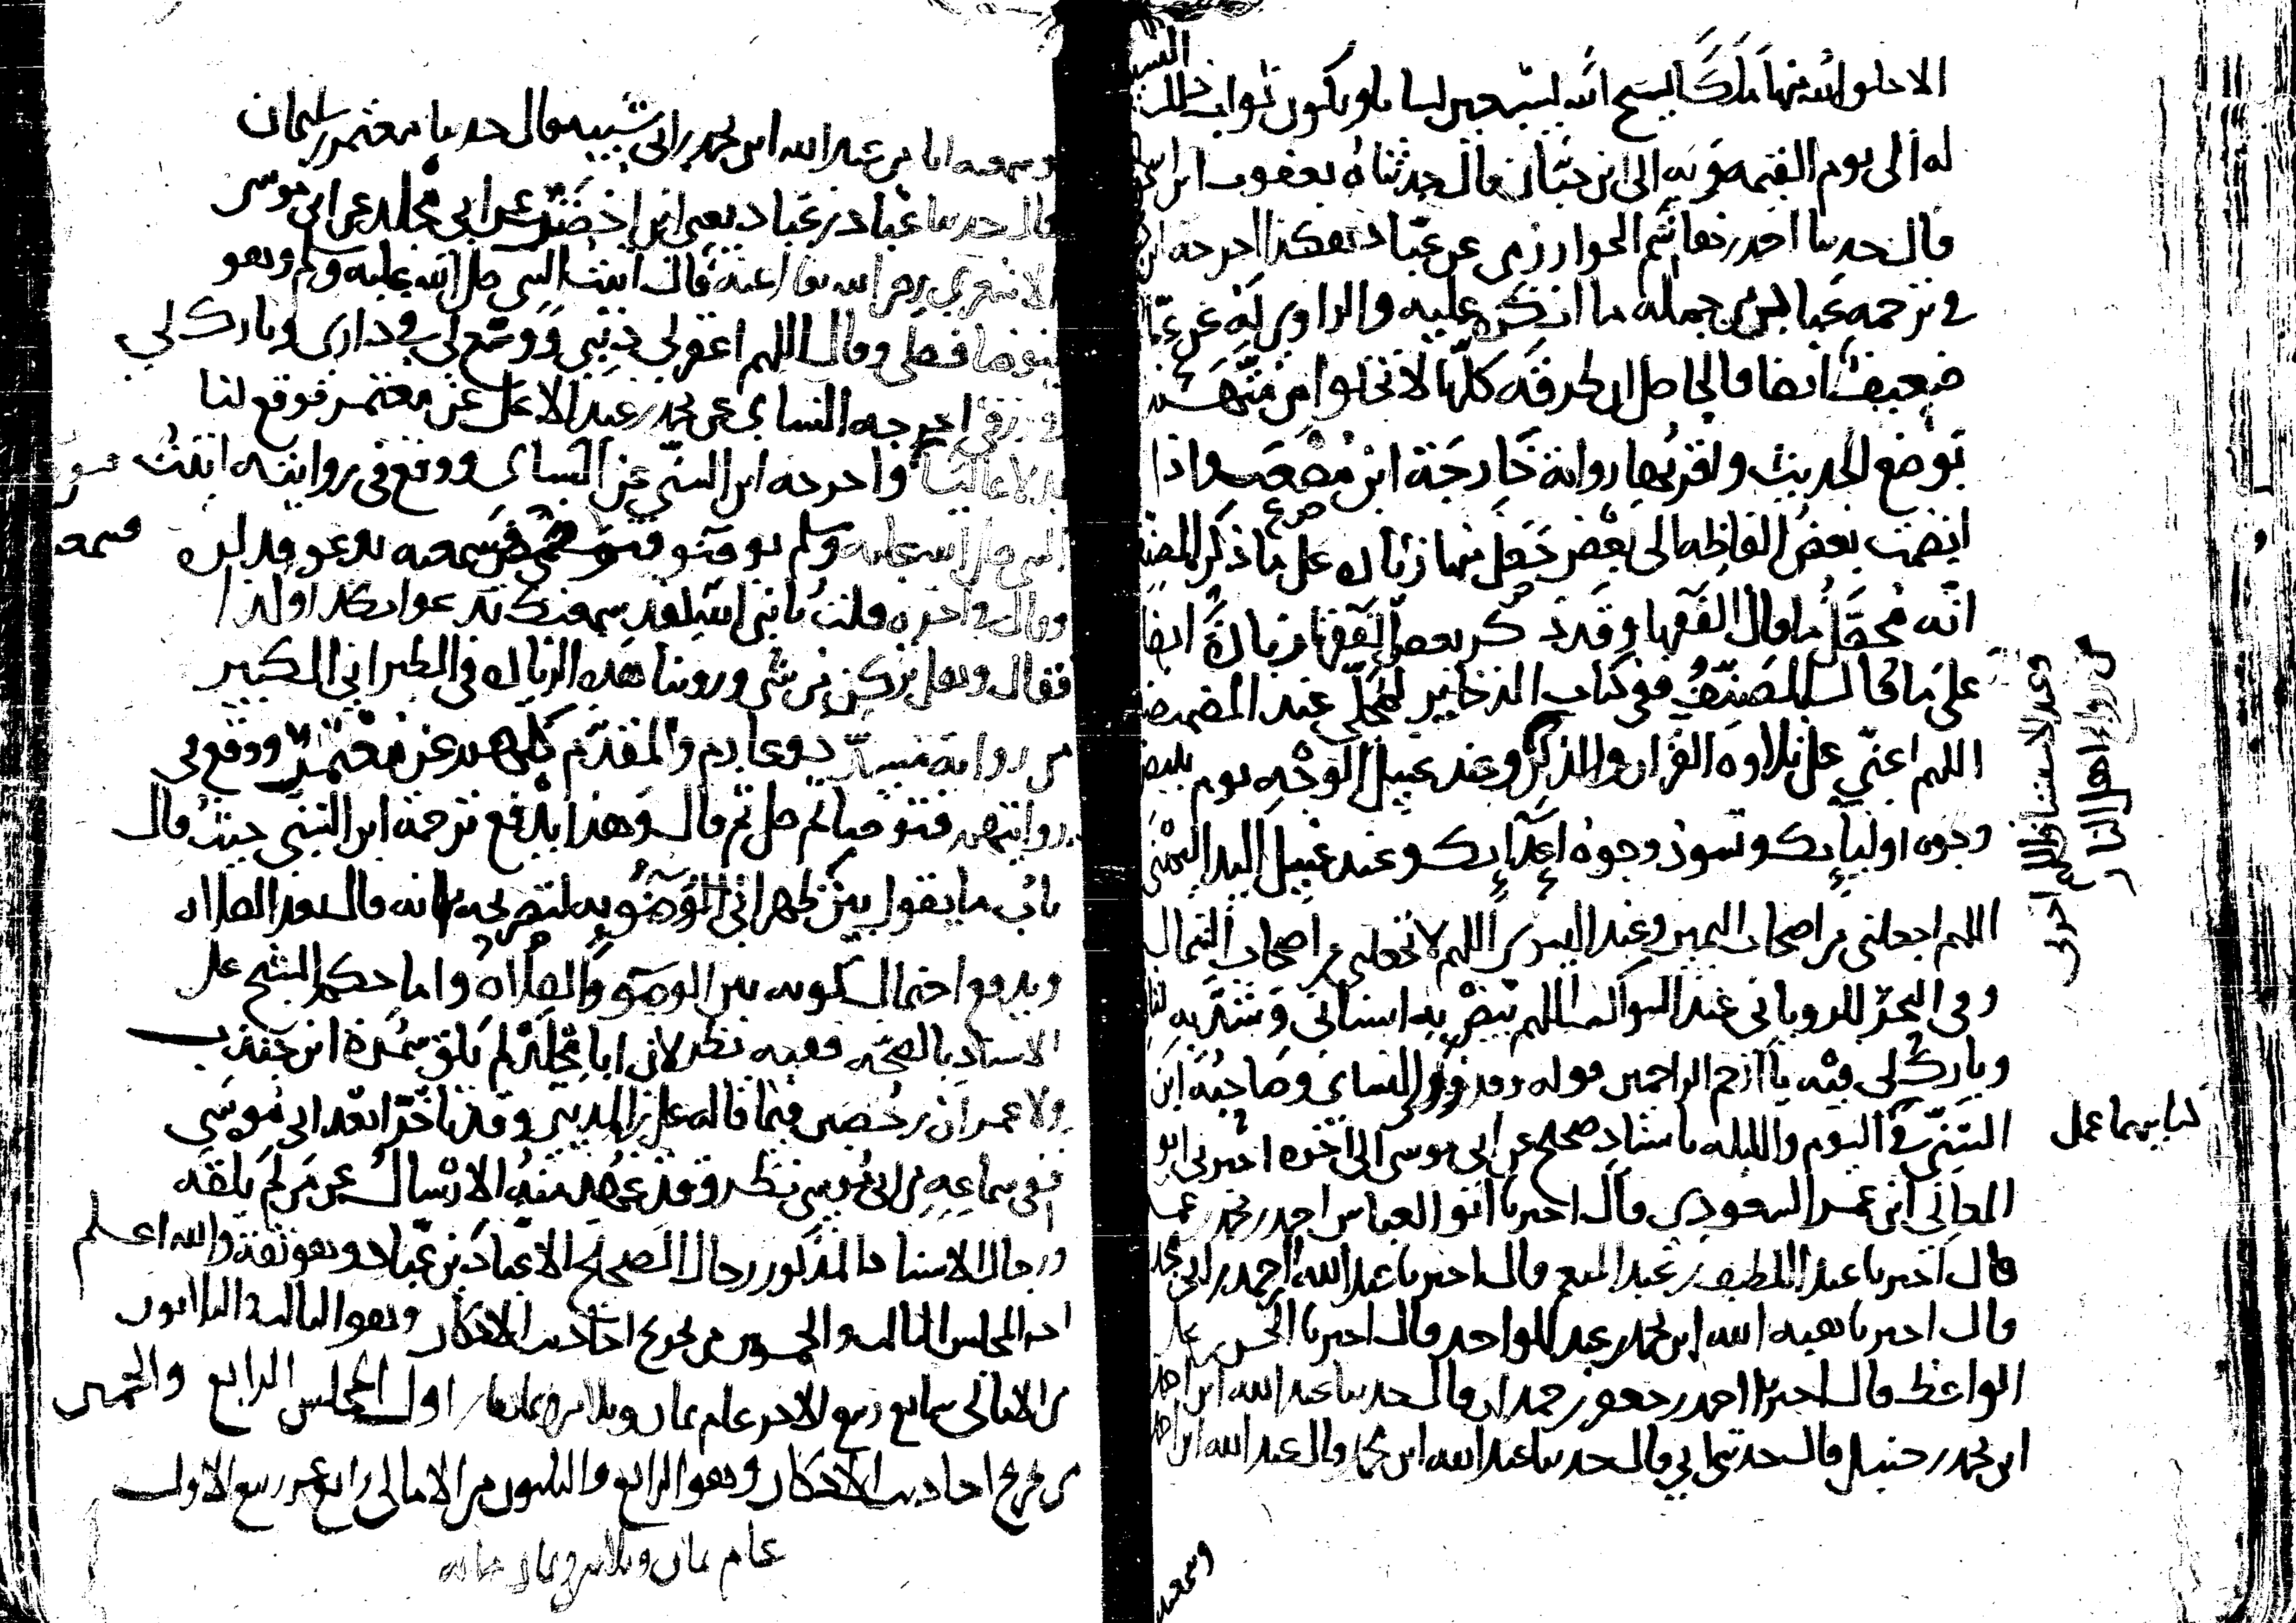 الا خلق الله منها ملكا يسبح الله بسبعين لسانا ويكون ثواب ذلك
له الى يوم القيمة وبه الى ابن حبان قال حدثناه يعقوب ابن اسحق
قال حدثنا احمد بن هاشم الخوارزمى عن عباد هكذا اخرجه ابن
فى ترجمة عباد من جملة ما انكره عليه والراوى له عن عباد
ضعيف ايضا فالحاصل ان طرقه كلها لا تخلوا من متهم
بوضع الحديث واقربها رواية خارجة ابن مصعب واذا
انضمت بعض الفاظه الى بعض حصل منها زيادة على ما ذكر المصنف
انه محصل ما قال الفقها وقد ذكر بعض الفقها زيادة ايضا
على ما قال المصنف ففى كتاب الذخاير لمجلى عند المضمضة
اللهم اعنى على تلاوة القران والذكر وعند غسل الوجه يوم تبيض
وجوه اوليايك وتسود وجوه اعدايك وعند غسل اليد اليمنى
اللهم اجعلنى من اصحاب اليمين وعند اليسرى اللهم لا تجعلنى من اصحاب الشمال
وفى البحر للرويانى عند السواك اللهم بيض به اسنانى وشد به
وبارك لى فيه يا ارحم الراحمين قوله وقد روى النساى وصاحبه ابن
السنى فى اليوم والليلة باسناد صحيح عن ابى موسى الى اخره اخبرنى ابو
المعالى ابن عمر السعودى قال اخبرنا ابو العباس احمد بن محمد بن عمر
قال اخبرنا عبد اللطيف بن عبد المنعم قال اخبرنا عبد الله بن احمد بن ابى المجد
قال اخبرنا هبة الله ابن محمد بن عبد الواحد قال اخبرنا الحسن بن على
الواعظ قال اخبرنا احمد بن جعفر بن حمدان قال حدثنا عبد الله ابن احمد
ابن محمد بن حنبل قال حدثنى ابى قال حدثنا عبد الله ابن محمد قال عبد الله ابن احمد
كتابيهما عمل
وسمعته
وسمعته انا من عبد الله ابن محمد بن ابى شيبه قال حدثنا معتمر بن سليمان
قال حدثنا عباد بن عباد يعنى ابن اخضر عن ابى مجلز عن ابى موسى
الاشعرى رضى الله تعالى عنه قال اتيت النبى صلى الله عليه وسلم وهو
يتوضا فصلى وقال اللهم اغفر لى ذنبى ووسع لى فى دارى وبارك لى
فى رزقى اخرجه النساى عن محمد بن عبد الاعلى عن معتمر فوقع لنا
بدلا عاليا واخرجه ابن السنى عن النساى ووقع فى روايته اتيت رسول
الله صلى الله عليه وسلم بوضو فتوضا فسمعته يدعو فذكره
وقال فى اخره قلت يا نبى الله لقد سمعتك تدعو بكذا وكذا
فقال وهل تركن من شى وروينا هذه الزيادة فى الطبرانى الكبير
من رواية مسدد وعارم والمقدمى كلهم عن معتمر ووقع فى
روايتهم فتوضا ثم صلى ثم قال وهذا يدفع ترجمة ابن السنى حيث قال
باب ما يقول بين ظهرانى الوضوء لتصريحه بانه قاله بعد الصلاة
ويدفع احتمال كونه بين الوضو والصلاة واما حكم الشيخ على
الاسناد بالصحة ففيه نظر لان ابا مجلز لم يلق سمرة ابن جندب
ولا عمران بن حصين فيما قاله على بن المدينى وقد تاخرا بعد ابى موسى
ففى سماعه من ابى موسى نظر وقد عهد منه الارسال عمن لم يلقه
ورجال الاسناد المذكور رجال الصحيح الا عباد بن عباد وهو ثقة والله اعلم
اخر المجلس الثالث والخمسين من تخريج احاديث الاذكار وهو الثالث والثلاثون
من الامالى سابع ربيع الاخر عام ثمان وثلاثين وثمانماية اول المجلس الرابع والخمسين
من تخريج احاديث الاذكار وهو الرابع والثلثون من الامالى رابع عشر ربيع الاول
عام ثمان وثلاثين وثمان ماية